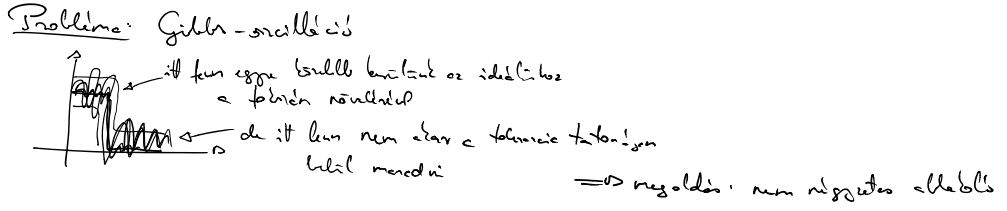 Probléma: Gibbs-oszcilláció
itt fenn egyre közelebb kerülünk az ideálishoz
a fokszám növelésével
de itt lenn nem akar a tolerancia tartományon
belül maradni
=> megoldás: nem négyzetes ablakozó